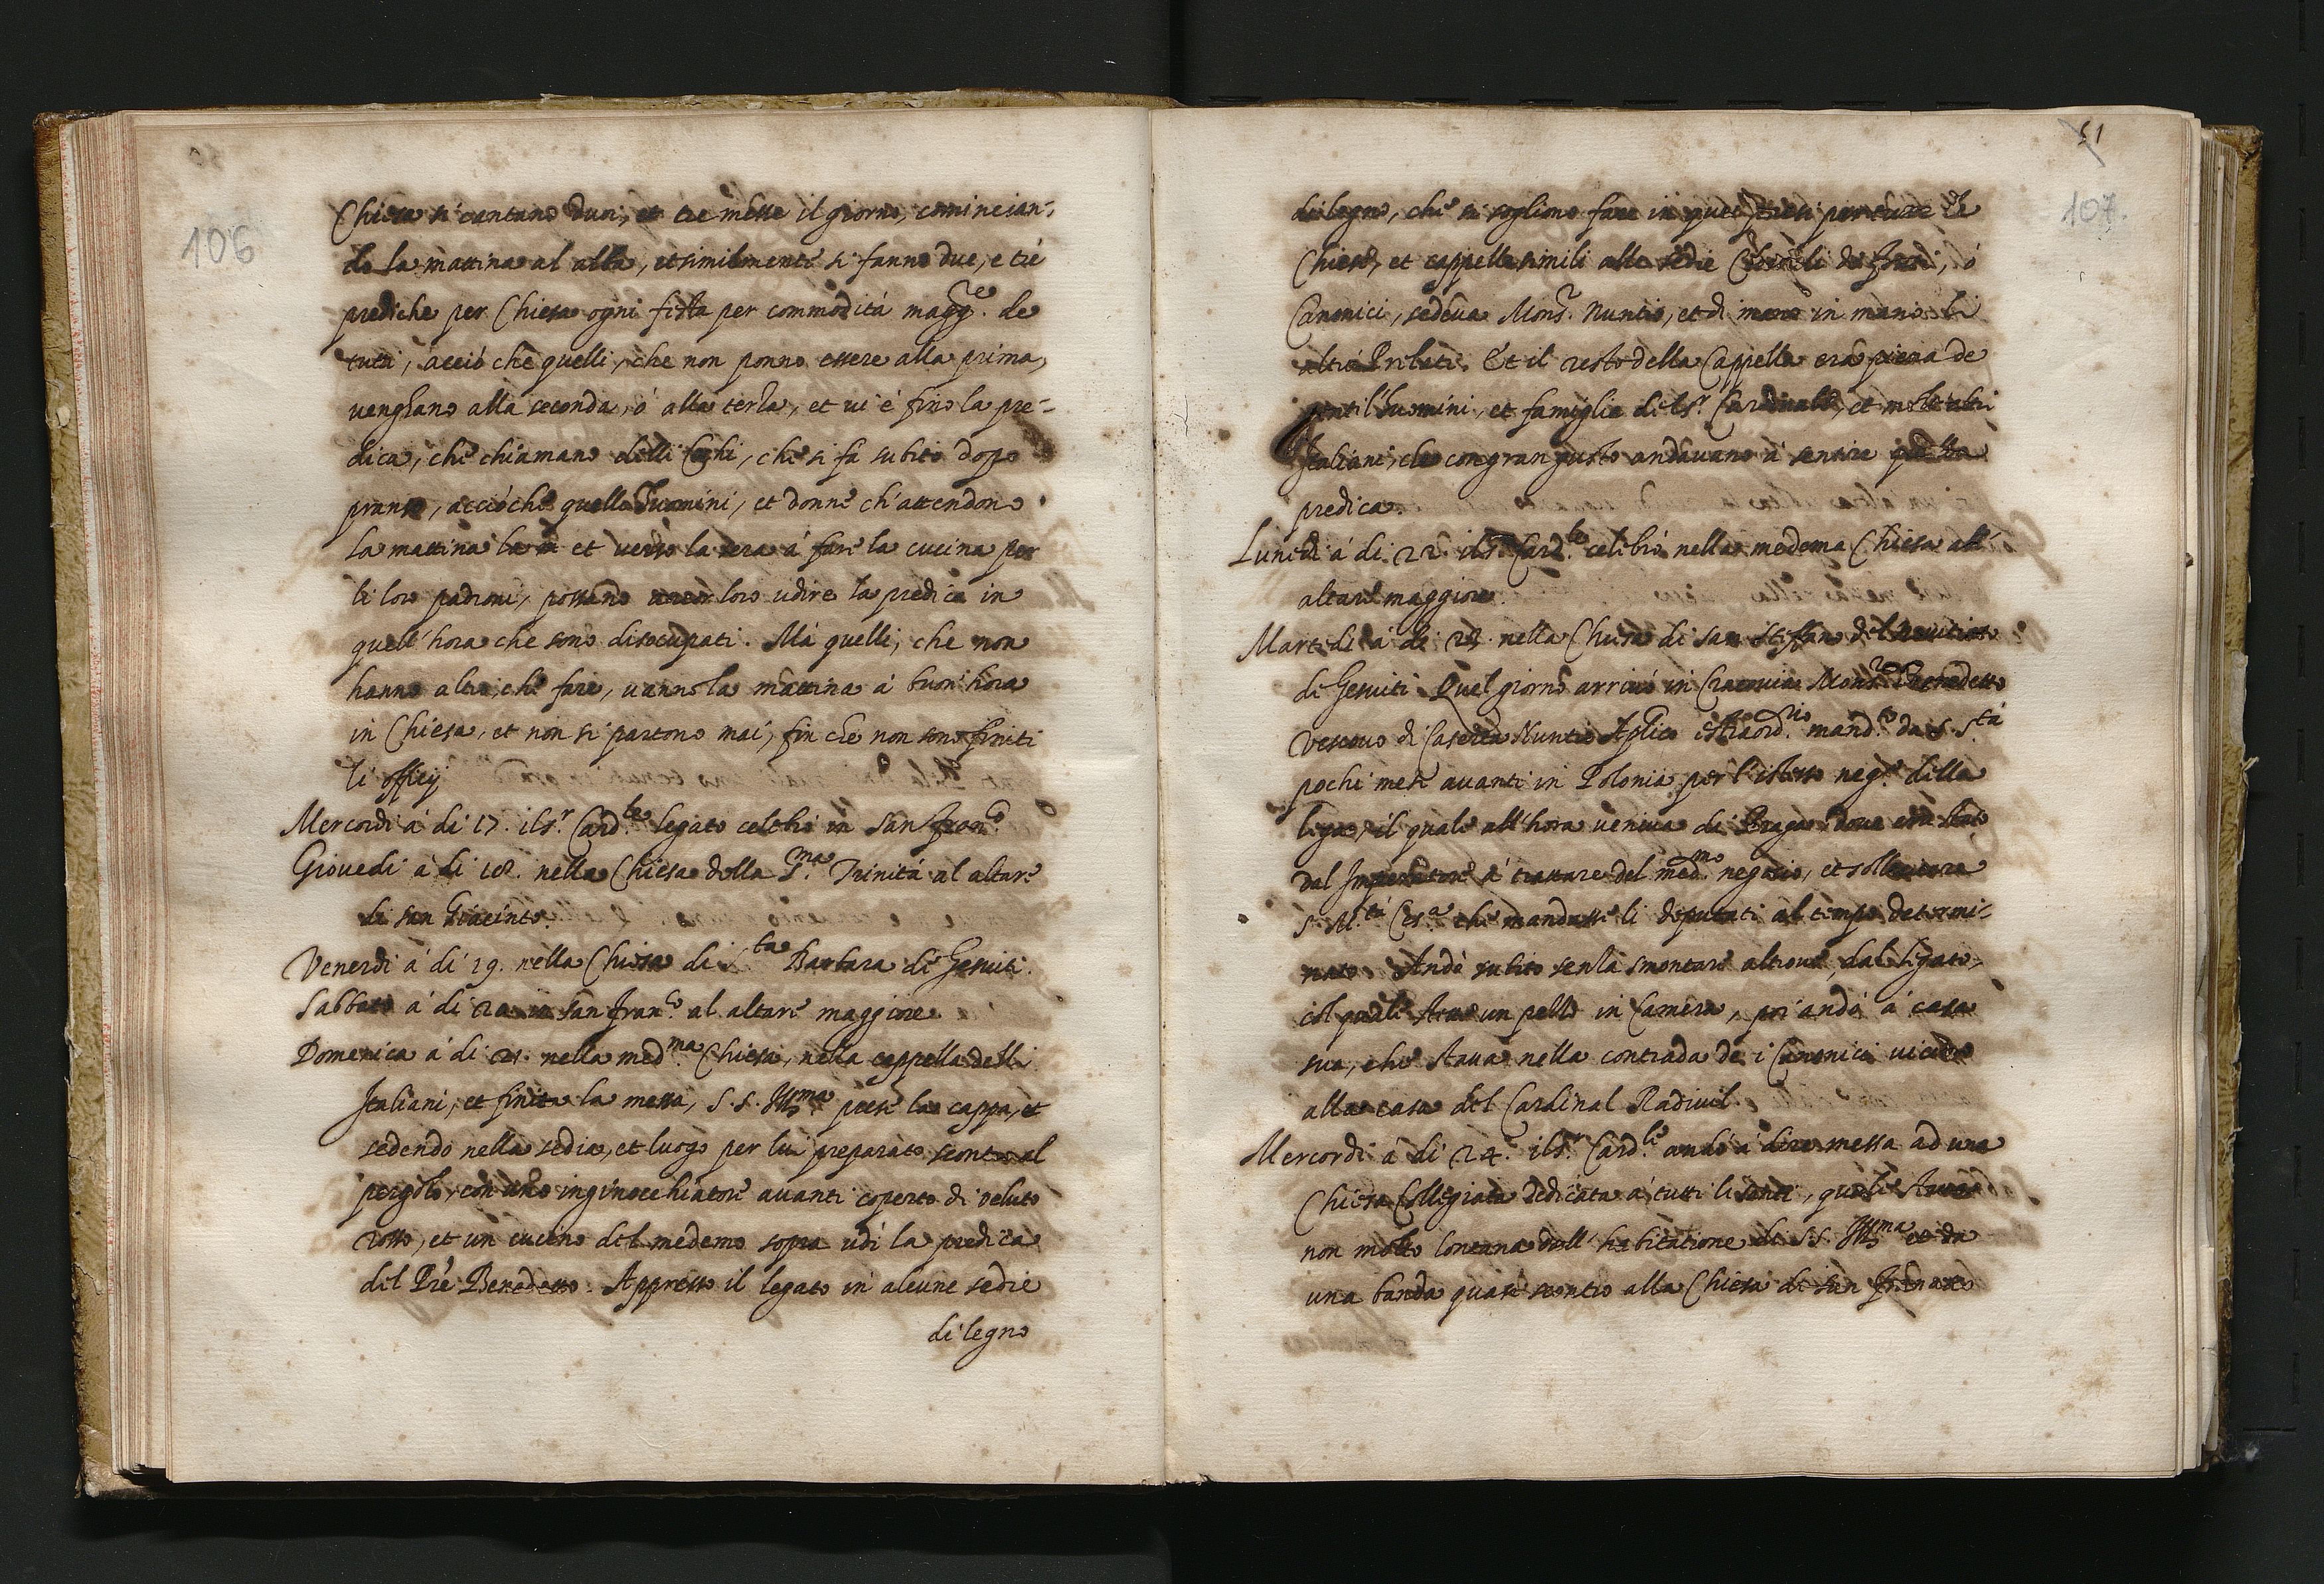 106
Chiesa si cantano duoi, et tre messe il giorno, comincian-
do la mattina al alba, et similmente si fanno due, e tre
prediche per Chiesa ogni festa per commodità magg.re de
tutti, acciò che quelli, che non ponno essere alla prima,
venghano alla seconda, ò alla terza, et vi è fino la pre-
dica, che chiamano delli Cochi, che si fà subito dopo
pranso, acciòche quelli huomini, et donne ch'attendono
la mattina et verso la sera à fare la cucina per
li loro padroni, possano loro udire la predica in
quell'hora che sono disocupati. Mà quelli, che non
hanno altro, che fare, vanno la mattina à buon'hora
in Chiesa, et non si partono mai, fin che non sono finiti
li officij
Mercordi à di 17. il s.r Card.le legato celebrò in san Fran.co
Giovedi à di 18. nella Chiesa della S.ma Trinità al altare
di san Giacinto.
Venerdi à di 19. nella Chiesa di S.ta Barbara de Gesuiti.
Sabbato à di 20. in san Fran.co al altare maggiore
Domenica à di 21. nella med.ma Chiesa, nella cappella delli
Italiani, et finita la messa, S. S. Ill.ma prese la cappa, et
sedendo nella sedia, et luogo per lui preparato scontro al
pergolo, con uno inginocchiatore avanti coperto di veluto
rosso, et un cucino del medemo sopra udì la predica
del Prè Benedetto. Appresso il legato in alcune sedie
di legno
51
107.
di legno, che si sogliono fare in questi per tutte le
Chiese, et cappelle simili alle sedie Chorali de frati, ò
Canonici, sedeva Mons.r Nuntio, et di mano in mano li
altri Prelati. Et il resto della Cappella era piena de
gentil'huomini, et famiglie del s.r Cardinale, et molti altri
Italiani, che con gran gusto andavano à sentire questa
predica.
Lunedi à di 22. il s.r Card.le celebrò nella medema Chiesa all'
altare maggiore.
Martedi à di 23. nella Chiesa di san Steffano del Novitiato
de Gesuiti. Quel giorno arrivò in Cracovia Mons.r Benedetto
Vescovo di Caserta Nuntio Aplico estraord.rio mand.to da S. S.tà
pochi mesi avanti in Polonia per l'istesso neg.o della
lega, il quale all'hora veniva di Praga, dove era stato
dal Imperatore à trattare del med.mo negotio, et sollecitare
S. M.tà Ces.a che mandasse li deputati al tempo determi-
nato. Andò subito senza smontare altrove, dal legato,
col quale stette un pezzo in Camera, poi andò à casa
sua, che stava nella contrada de i Canonici vicino
alla casa del Cardinal Radivil.
Mercordi à di 24. il s.r Card.le andò à dire messa ad una
Chiesa Collegiata dedicata à tutti li santi, quale stava
non molto lontana dall'habitatione di S. S. Ill.ma et da
una banda quasi scontro alla Chiesa di san Fran.co